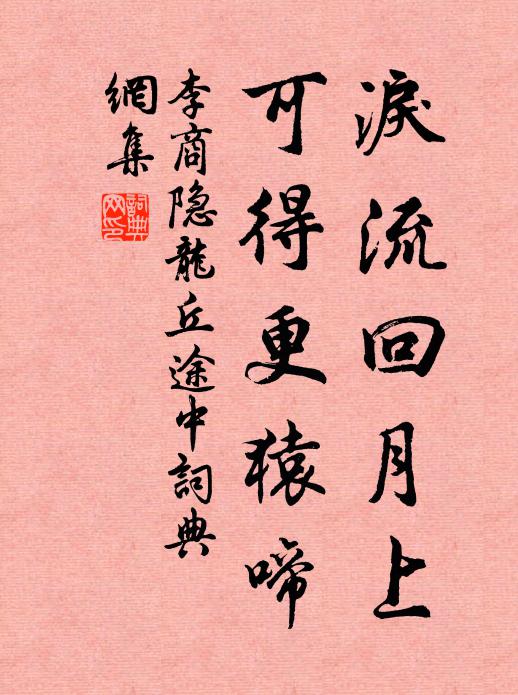 淚流回月上
可得更猿啼
李商隐龍丘途中詞典
網集
詞典網印